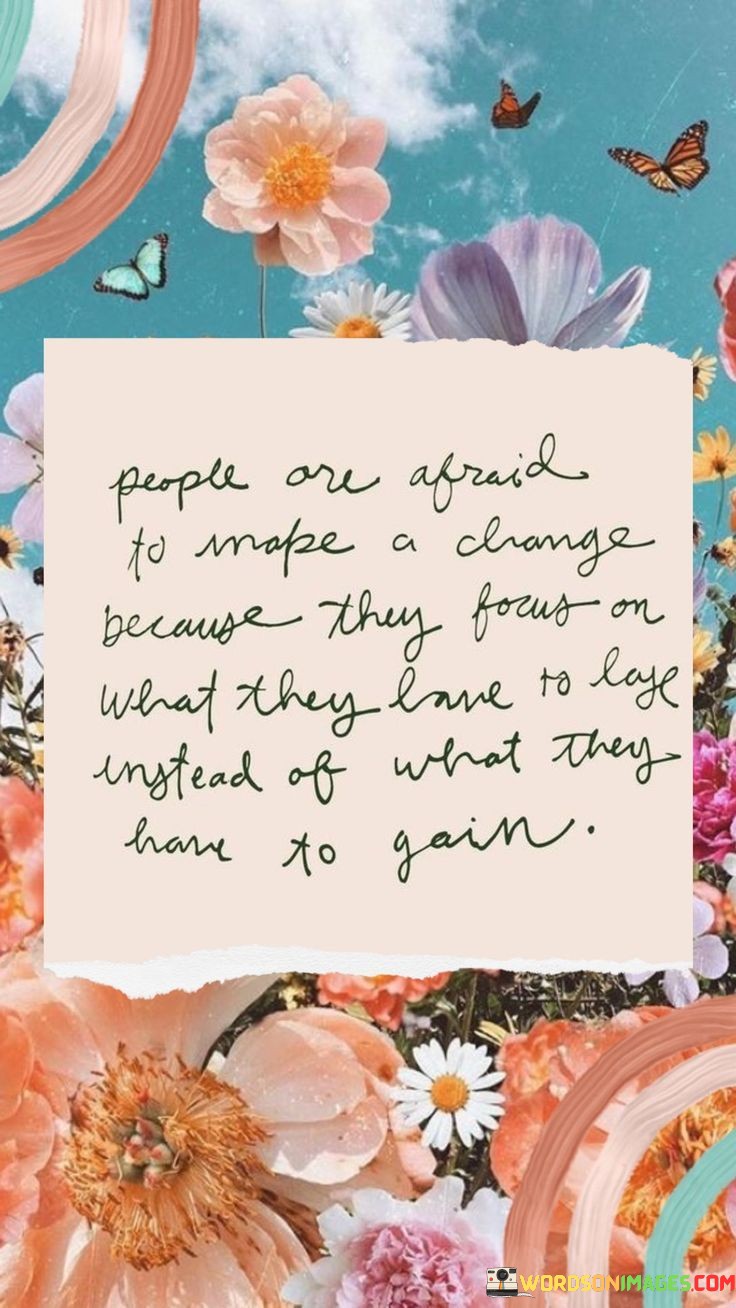 people are afraid
to make a change
because they focus on
what they have to lose
instead of what they
have to gain.
WORDSONIMAGES.COM